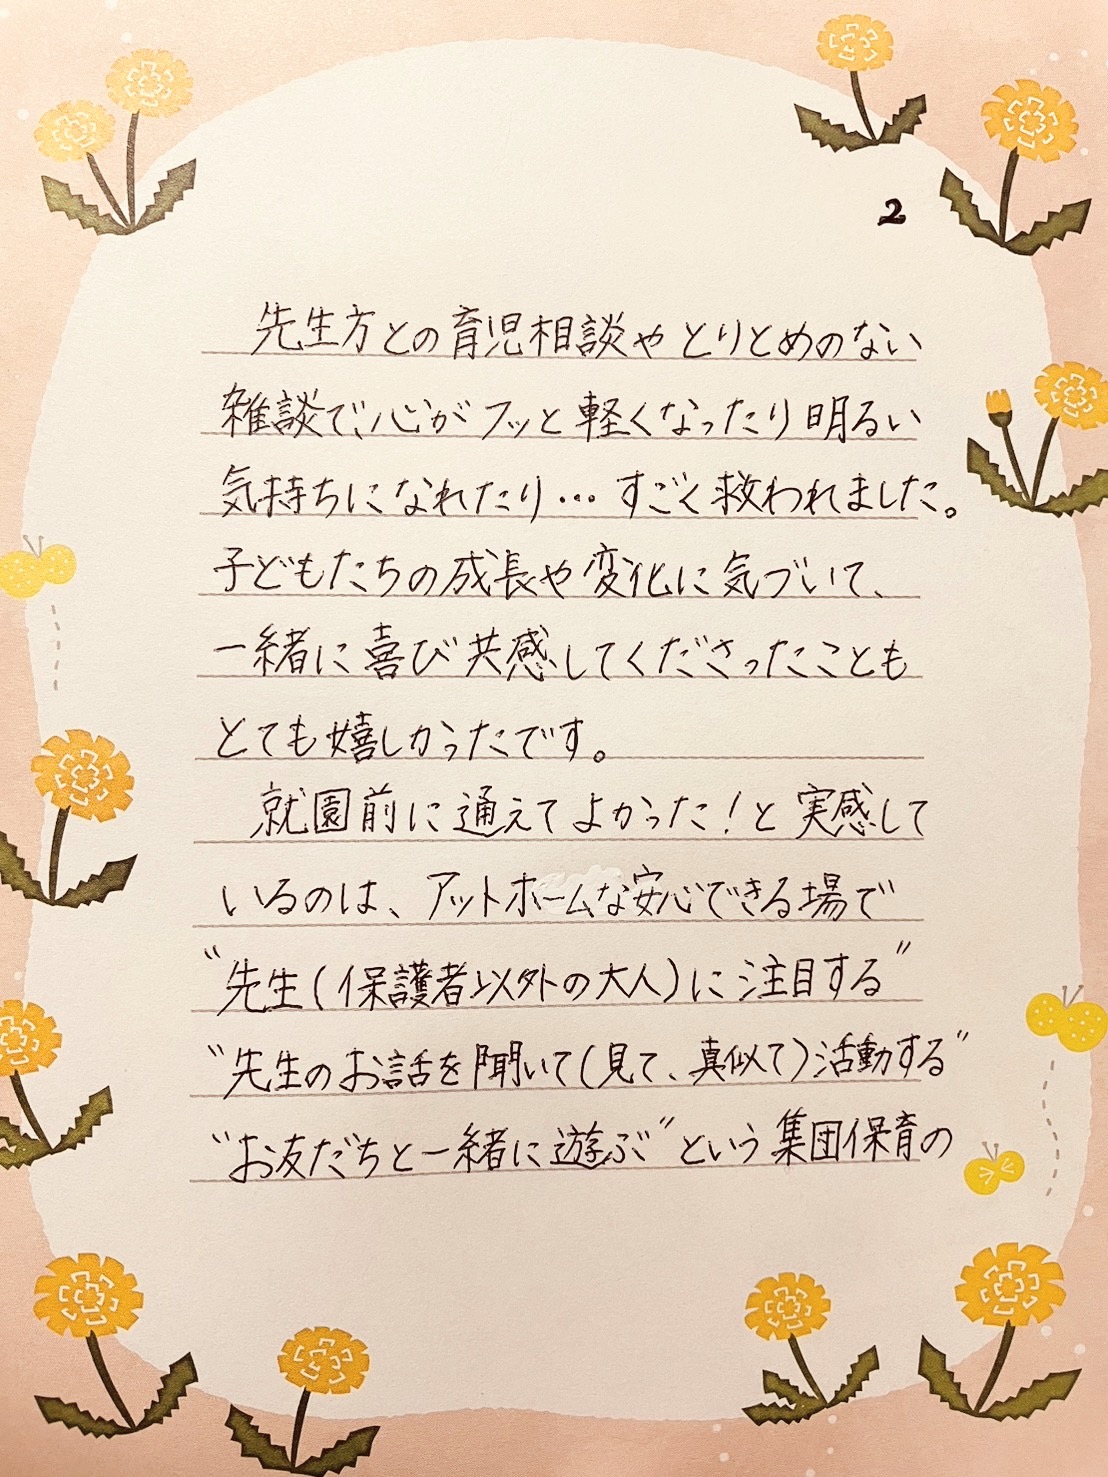 2
先生方との育児相談やとりとめのない
雑談で、心がフッと軽くなったり明るい
気持ちになれたり…すごく救われました。
子どもたちの成長や変化に気づいて、
一緒に喜び共感してくださったことも
とても嬉しかったです。
就園前に通えてよかった!と実感して
いるのは、アットホームな安心できる場で
“先生(保護者以外の大人)に注目する”
“先生のお話を聞いて(見て、真似て)活動する”
“お友だちと一緒に遊ぶ”という集団保育の